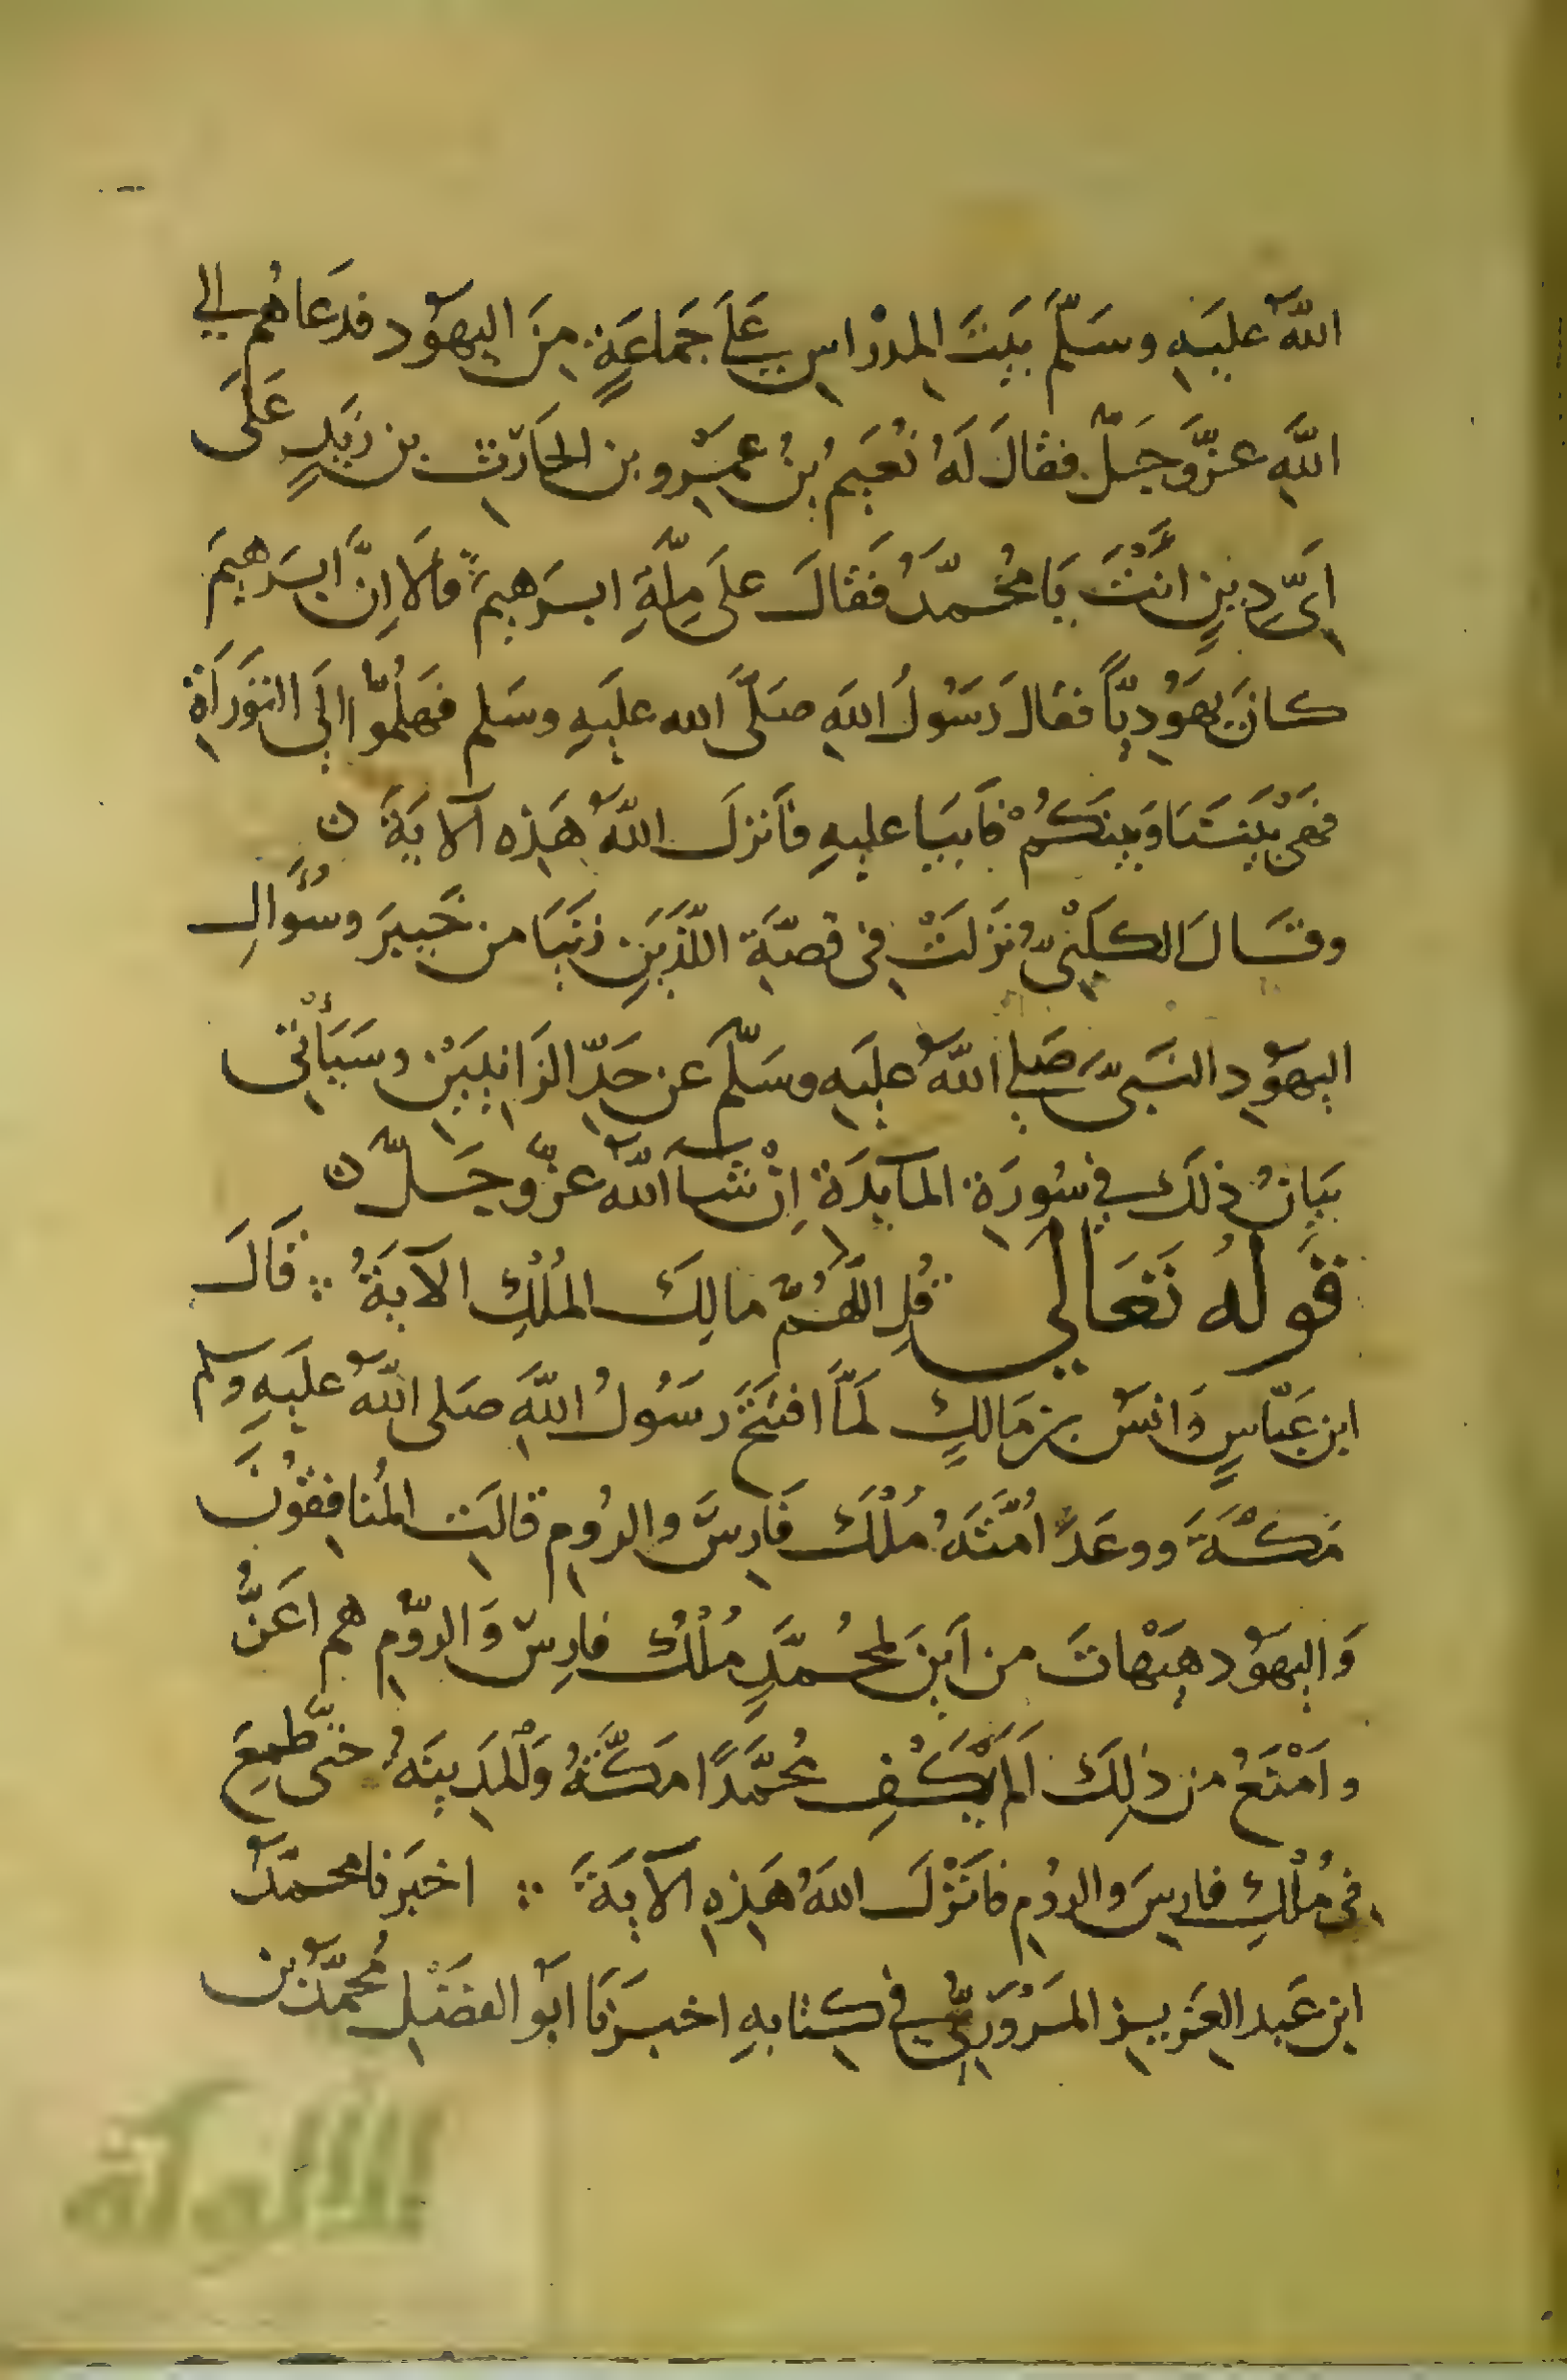 اللهُ عليَهِ وسَلَّمَ بَيتَ المِدْرَاسِ عَلَى جَمَاعَةٍ مِنَ اليهوُد فدَعَاهُم الي
اللَّهِ عزَّوَجَلَّ فقالَ لَهُ نُعَيمُ بنُ عَمرٍو بن الحَارِثِ بن زَيدٍ عَلَى
اَىِّ دِينٍ انتَ يَا مُحَمَّدُ فَقالَ علَى مِلَّةِ ابرَهيمَ قالَا اِنَّ ابرَهيمَ
كانَ يهَوُديّاً فقالَ رَسُولُ اللهِ صَلَّى الله علَيهِ وسَلم فَهَلُمُّوا الَى التَورَاةِ
فهىَ بَينَنَا وَبينَكُمْ فَابَيَا عليهِ فاَنزلَ اللَّهُ هَذِه الآيَةَ ن
وقَالَ الكلبىُّ نزَلَتْ فى قصَّةِ اللَّذَينِ زنَيَا من خَيبرَ وسُؤالِ
اليهوُدِ النبىَّ صَلى اللَّهُ علَيهِ وسَلَّمَ عَن حَدِّ الزَانِيَيْن وسَيَأتى
بَيانُ ذلَك في سُورَةِ المآيِدَةِ اِنْ شآ اللَّهُ عزَّ وجَلَّ ن
قولهُ تَعَالَى قُلِ اللَّهُمَّ مالِكَ المُلْكِ الآيَةُ ؞ قاَلَ
ابن عَبّاسٍ وَانسُ بن مَالكٍ لَمَّا افتَتحَ رَسُولُ اللهِ صَلى اللهُ علَيهِ وسلم
مَكَّةَ ووعَدَ اُمَّتَهُ مُلْكَ فَارِسَ والروُمِ قالَتِ المُنافِقوُنَ
وَاليهوُد هَيْهَاتَ من اَينَ لمحُمَّدٍ مُلْكُ فارِسَ وَالروُّمِ هم اعَزُّ
واَمْنَعُ من ذلِكَ اَلَم يَكْفِ مُحَمَّدًا مَكَّةُ وَالْمَدِينَةُ حتىَّ طمِعَ
فى مُلْكِ فارِسَ والروُمِ فاَنْزَلَ اللهُ هَذِهِ الآيَةَ ؞ اخبَرنا محمَّدُ
ابن عَبد العَزيز المَرْوَزيُّ في كِتابِهِ اخبرَنَا ابُو الفَضْلِ مُحمَّدُ بن
الألوكة